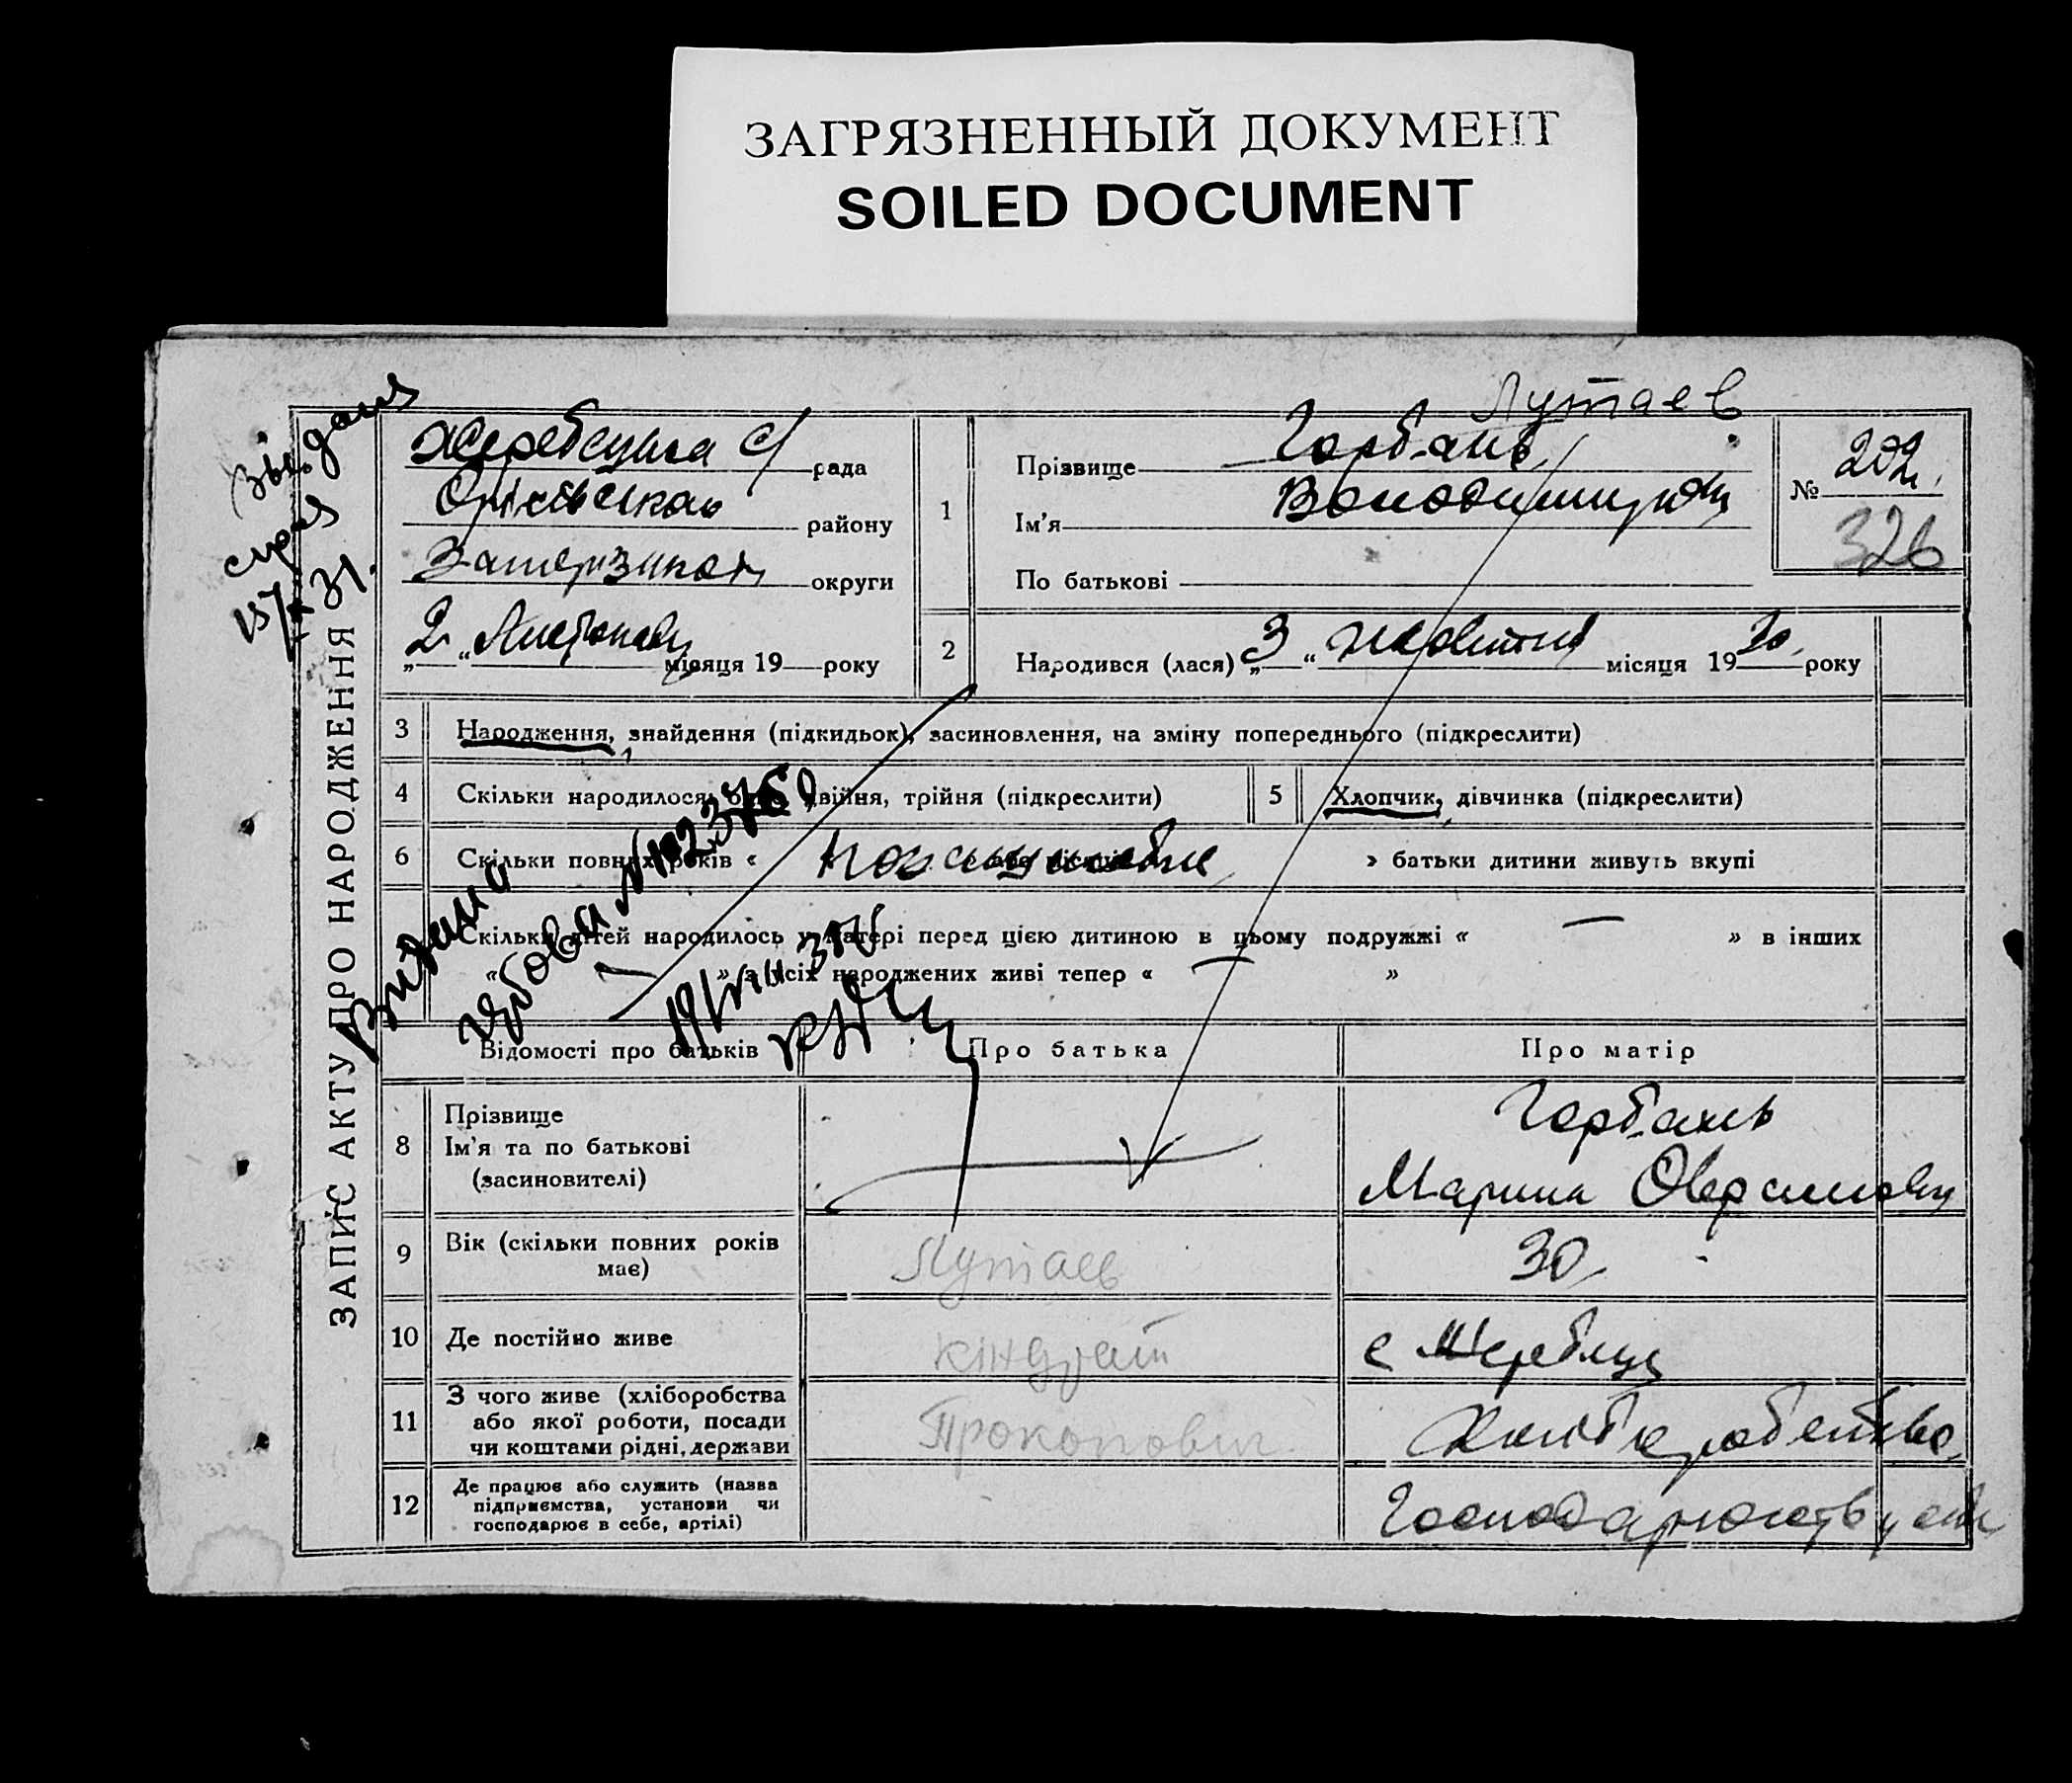 ЗАГРЯЗНЕННЫЙ ДОКУМЕНТ
SOILED DOCUMENT
ЗАПИС АКТУ ПРО НАРОДЖЕННЯ
рада
району
округи
„2“ Листопаду місяця 19 року
1
Лутаев
Прізвище Горбань
Ім'я
По батькові
№ 292
326
2
Народився (лася) „3“ жовтня місяця 1930 року
3 Народження, знайдення (підкидьок), засиновлення, на зміну попереднього (підкреслити)
4 Скільки народилося: двійня, трійня (підкреслити)
5 Хлопчик, дівчинка (підкреслити)
6 Скільки повних років « » батьки дитини живуть вкупі
Скільки дітей народилось у матері перед цією дитиною в цьому подружжі « — » в інших
« — » з усіх народжених живі тепер « — »
Видана
Відомості про батьків
Про батька
Про матір
8 Прізвище
Ім'я та по батькові
(засиновителі)
Горбань
Марина
9 Вік (скільки повних років
має)
Лутаев
30
10 Де постійно живе
Кіндрат
с Жеребець
11 З чого живе (хліборобства
або якої роботи, посади
чи коштами рідні, держави
Прокопович
Хліборобство
12 Де працює або служить (назва
підприємства, установи чи
господарює в себе, артілі)